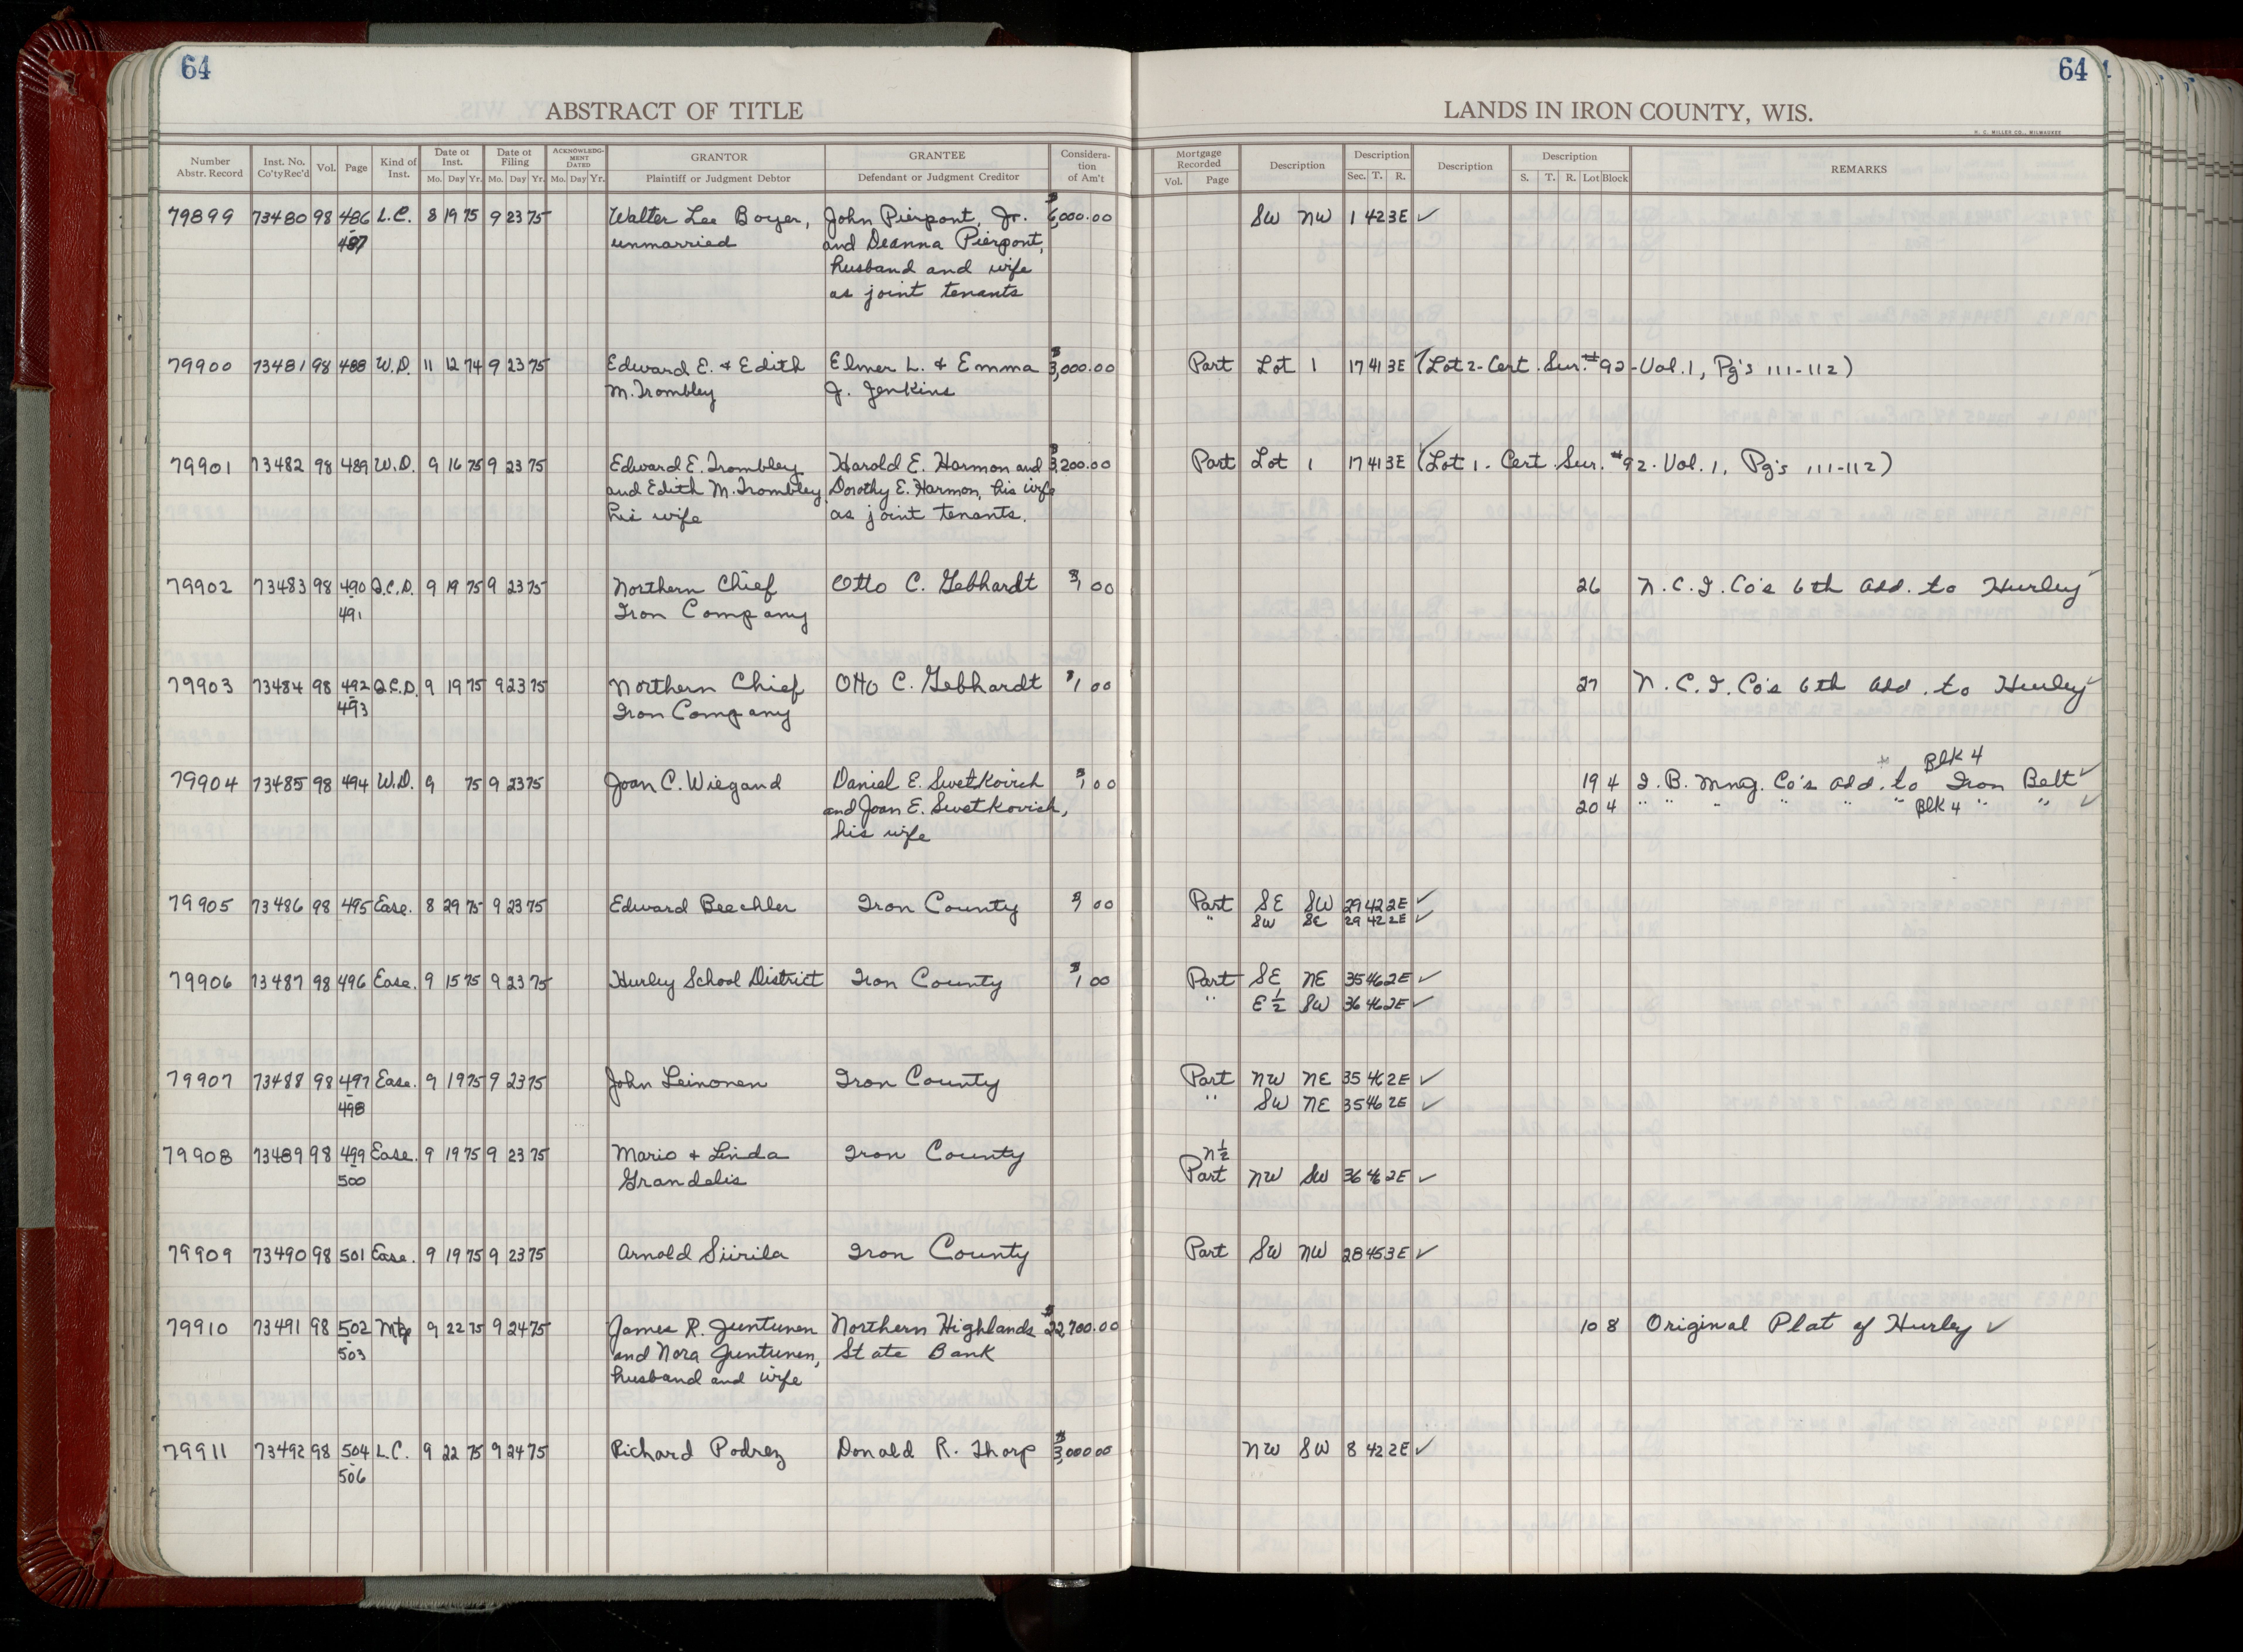 64
64
ABSTRACT OF TITLE
LANDS IN IRON COUNTY, WIS.
H. C. MILLER CO., MILWAUKEE
Number Abstr. Record | Inst. No. Co'ty Rec'd | Vol. | Page | Kind of Inst. | Date of Inst. Mo. Day Yr. | Date of Filing Mo. Day Yr. | ACKNOWLEDGMENT DATED Mo. Day Yr. | GRANTOR Plaintiff or Judgment Debtor | GRANTEE Defendant or Judgment Creditor | Consideration of Am't | Mortgage Recorded Vol. Page | Description | Description Sec. T. R. | Description | Description S. T. R. Lot Block | REMARKS
79899 73480 98 486 L.C. 8 19 75 9 23 75 Walter Lee Boyer, John Pierpont, Jr. $6,000.00 SW NW 1 42 3E ✓
- 487 unmarried and Deanna Pierpont,
husband and wife
as joint tenants
79900 73481 98 488 W.D. 11 12 74 9 23 75 Edward E. & Edith Elmer L. & Emma $3,000.00 Part Lot 1 17 41 3E ✓ (Lot 2 - Cert. Sur. #92 - Vol. 1, Pg's 111-112)
M. Trombley J. Jenkins
79901 73482 98 489 W.D. 9 16 75 9 23 75 Edward E. Trombley Harold E. Harmon and $3,200.00 Part Lot 1 17 41 3E ✓ (Lot 1 - Cert. Sur. #92 - Vol. 1, Pg's 111-112)
and Edith M. Trombley, Dorothy E. Harmon, his wife
his wife as joint tenants.
79902 73483 98 490 Q.C.D. 9 19 75 9 23 75 Northern Chief Otto C. Gebhardt $1 00 26 N.C.I. Co's 6th Add. to Hurley ✓
- 491 Iron Company
79903 73484 98 492 Q.C.D. 9 19 75 9 23 75 Northern Chief Otto C. Gebhardt $1 00 27 N.C.I. Co's 6th Add. to Hurley ✓
- 493 Iron Company
Blk 4
79904 73485 98 494 W.D. 9 75 9 23 75 Joan C. Wiegand Daniel E. Swetkovich $1 00 19 4 I.B. Mng. Co's Add. to Iron Belt ✓
and Joan E. Swetkovich, 20 4 " " " " " " Blk 4 " " ✓
his wife
79905 73486 98 495 Ease. 8 29 75 9 23 75 Edward Beechler Iron County $1 00 Part SE SW 29 42 2E ✓
" SW SE 29 42 2E ✓
79906 73487 98 496 Ease. 9 15 75 9 23 75 Hurley School District Iron County $1 00 Part SE NE 35 46 2E ✓
" E ½ SW 36 46 2E ✓
79907 73488 98 497 Ease. 9 19 75 9 23 75 John Leinonen Iron County Part NW NE 35 46 2E ✓
- 498 " SW NE 35 46 2E ✓
79908 73489 98 499 Ease. 9 19 75 9 23 75 Mario & Linda Iron County N ½
- 500 Grandelis Part NW SW 36 46 2E ✓
79909 73490 98 501 Ease. 9 19 75 9 23 75 Arnold Siirila Iron County Part SW NW 28 45 3E ✓
79910 73491 98 502 Mtg 9 22 75 9 24 75 James R. Juntunen Northern Highlands $22,700.00 10 8 Original Plat of Hurley ✓
- 503 and Nora Juntunen, State Bank
husband and wife
79911 73492 98 504 L.C. 9 22 75 9 24 75 Richard Podrez Donald R. Thorp $3,000 00 NW SW 8 42 2E ✓
- 506